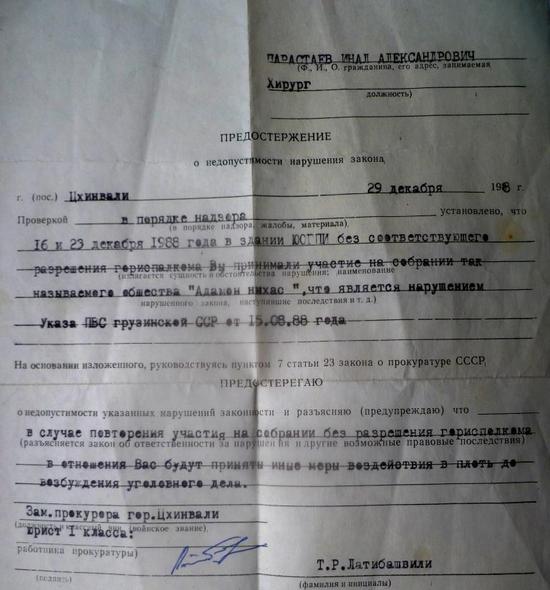 ПАРАСТАЕВ ИНАЛ АЛЕКСАНДРОВИЧ
(Ф., И., О. гражданина, его адрес, занимаемая
Хирург
должность)
ПРЕДОСТЕРЖЕНИЕ
о недопустимости нарушения закона
г. (пос.) Цхинвали 29 декабря 1988 г.
Проверкой в порядке надзора установлено, что
(в порядке надзора, жалобы, материала)
16 и 23 декабря 1988 года в здании ЮОГПИ без соответствующего
разрешения гориспалкома Вы принимали участие на собрании так
(излагается сущность и обстоятельства нарушения; наименование
называемого общества "Адамон нихас ",что является нарушением
нарушенного закона, наступившие последствия и т. д.)
Указа ПВС грузинской ССР от 15.08.88 года
На основании изложенного, руководствуясь пунктом 7 статьи 23 закона о прокуратуре СССР,
ПРЕДОСТЕРЕГАЮ
о недопустимости указанных нарушений законности и разъясняю (предупреждаю) что
в случае повторения участия на собрании без разрешения горисполкома
(разъясняется закон об ответственности за нарушения и другие возможные правовые последствия)
в отношения Вас будут приняты иные меры воздействия в плоть до
возбуждения уголовного дела.
Зам.прокурора гор.Цхинвали
(должность и классный чин (воинское звание)
юрист I класса:
работника прокуратуры)
Т.Р.Латибашвили
(подпись) (фамилия и инициалы)